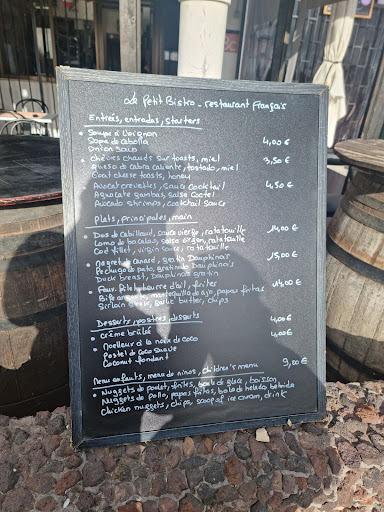 Le Petit Bistro - restaurant Français
Entrées, entradas, starters
• Soupe à l'oignon
Sopa de cebolla 4,00 €
Onion soup
• Chèvres chauds sur toasts, miel 3,50 €
Queso de cabra caliente, tostado, miel
Goat cheese toasts, honey
Avocat crevettes, sauce cocktail 4,50 €
Aguacate gambas, salsa coctel
Avocado shrimps, cocktail sauce
Plats, principales, main
• Dos de cabillaud, sauce vierge, ratatouille 14,00 €
Lomo de bacalao, salsa virgen, ratatouille
Cod fillet, virgin sauce, ratatouille
• Magret de canard, gratin Dauphinois 15,00 €
Pechuga de pato, gratin Dauphinois
Duck breast, Dauphinois gratin
• Faux filet, beurre d'ail, frites 14,00 €
Bife mantequilla de ajo, papas fritas
Sirloin steak, garlic butter, chips
Desserts, postres, desserts
• crème brûlé 4,00 €
• Moelleux à la noix de coco 4,00 €
Pastel de coco suave
Coconut fondant
Menu enfants, menu de ninos, children's menu 9,00 €
• Nuggets de poulet, frites, boule de glace, boisson
Nuggets de pollo, papas fritas, bola de helado, bebida
Chicken nuggets, chips, scoop of ice cream, drink